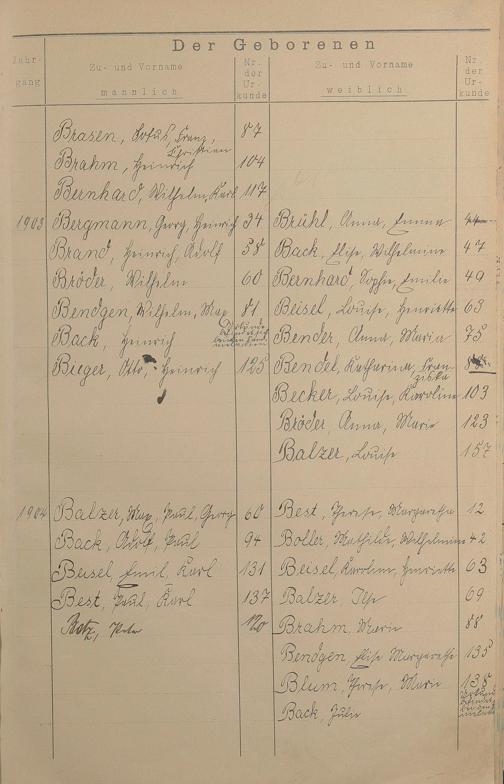 Der Geborenen
Jahr-
gang
Zu- und Vorname
männlich
Nr.
der
Ur-
kunde
Zu- und Vorname
weiblich
Nr.
der
Ur-
kunde
Brasen, Franz, 87
Christian
Brahm, Heinrich 104
Bernhard, Wilhelm, Karl 117
1903 Bergmann, Georg, Heinrich 34 Brühl, Anna, Emma 44
Brand, Heinrich, Adolf 58 Back, Elise, Wilhelmine 47
Bröder, Wilhelm 60 Bernhard, Sophie, Emilie 49
Bendgen, Wilhelm, Max 81 Beisel, Louise, Henriette 63
Back, Heinrich Bender, Anna, Maria 75
Bieger, Otto, Heinrich 125 Bendel, Katharina, Fran-
ziska
Becker, Louise, Karoline 103
Bröder, Anna, Marie 123
Balzer, Louise 157
1904 Balzer, Max, Paul, Georg 60 Best, Therese, Margaretha 12
Back, Adolf, Paul 94 Boller, Mathilde, Wilhelmine 42
Beisel, Emil, Karl 131 Beisel, Karoline, Henriette 63
Best, Paul, Karl 137 Balzer, Ilse 69
Betz, Peter 120 Brahm, Marie 88
Bendgen, Elise Margarethe 135
Blum, Therese, Marie 138
Back, Julie